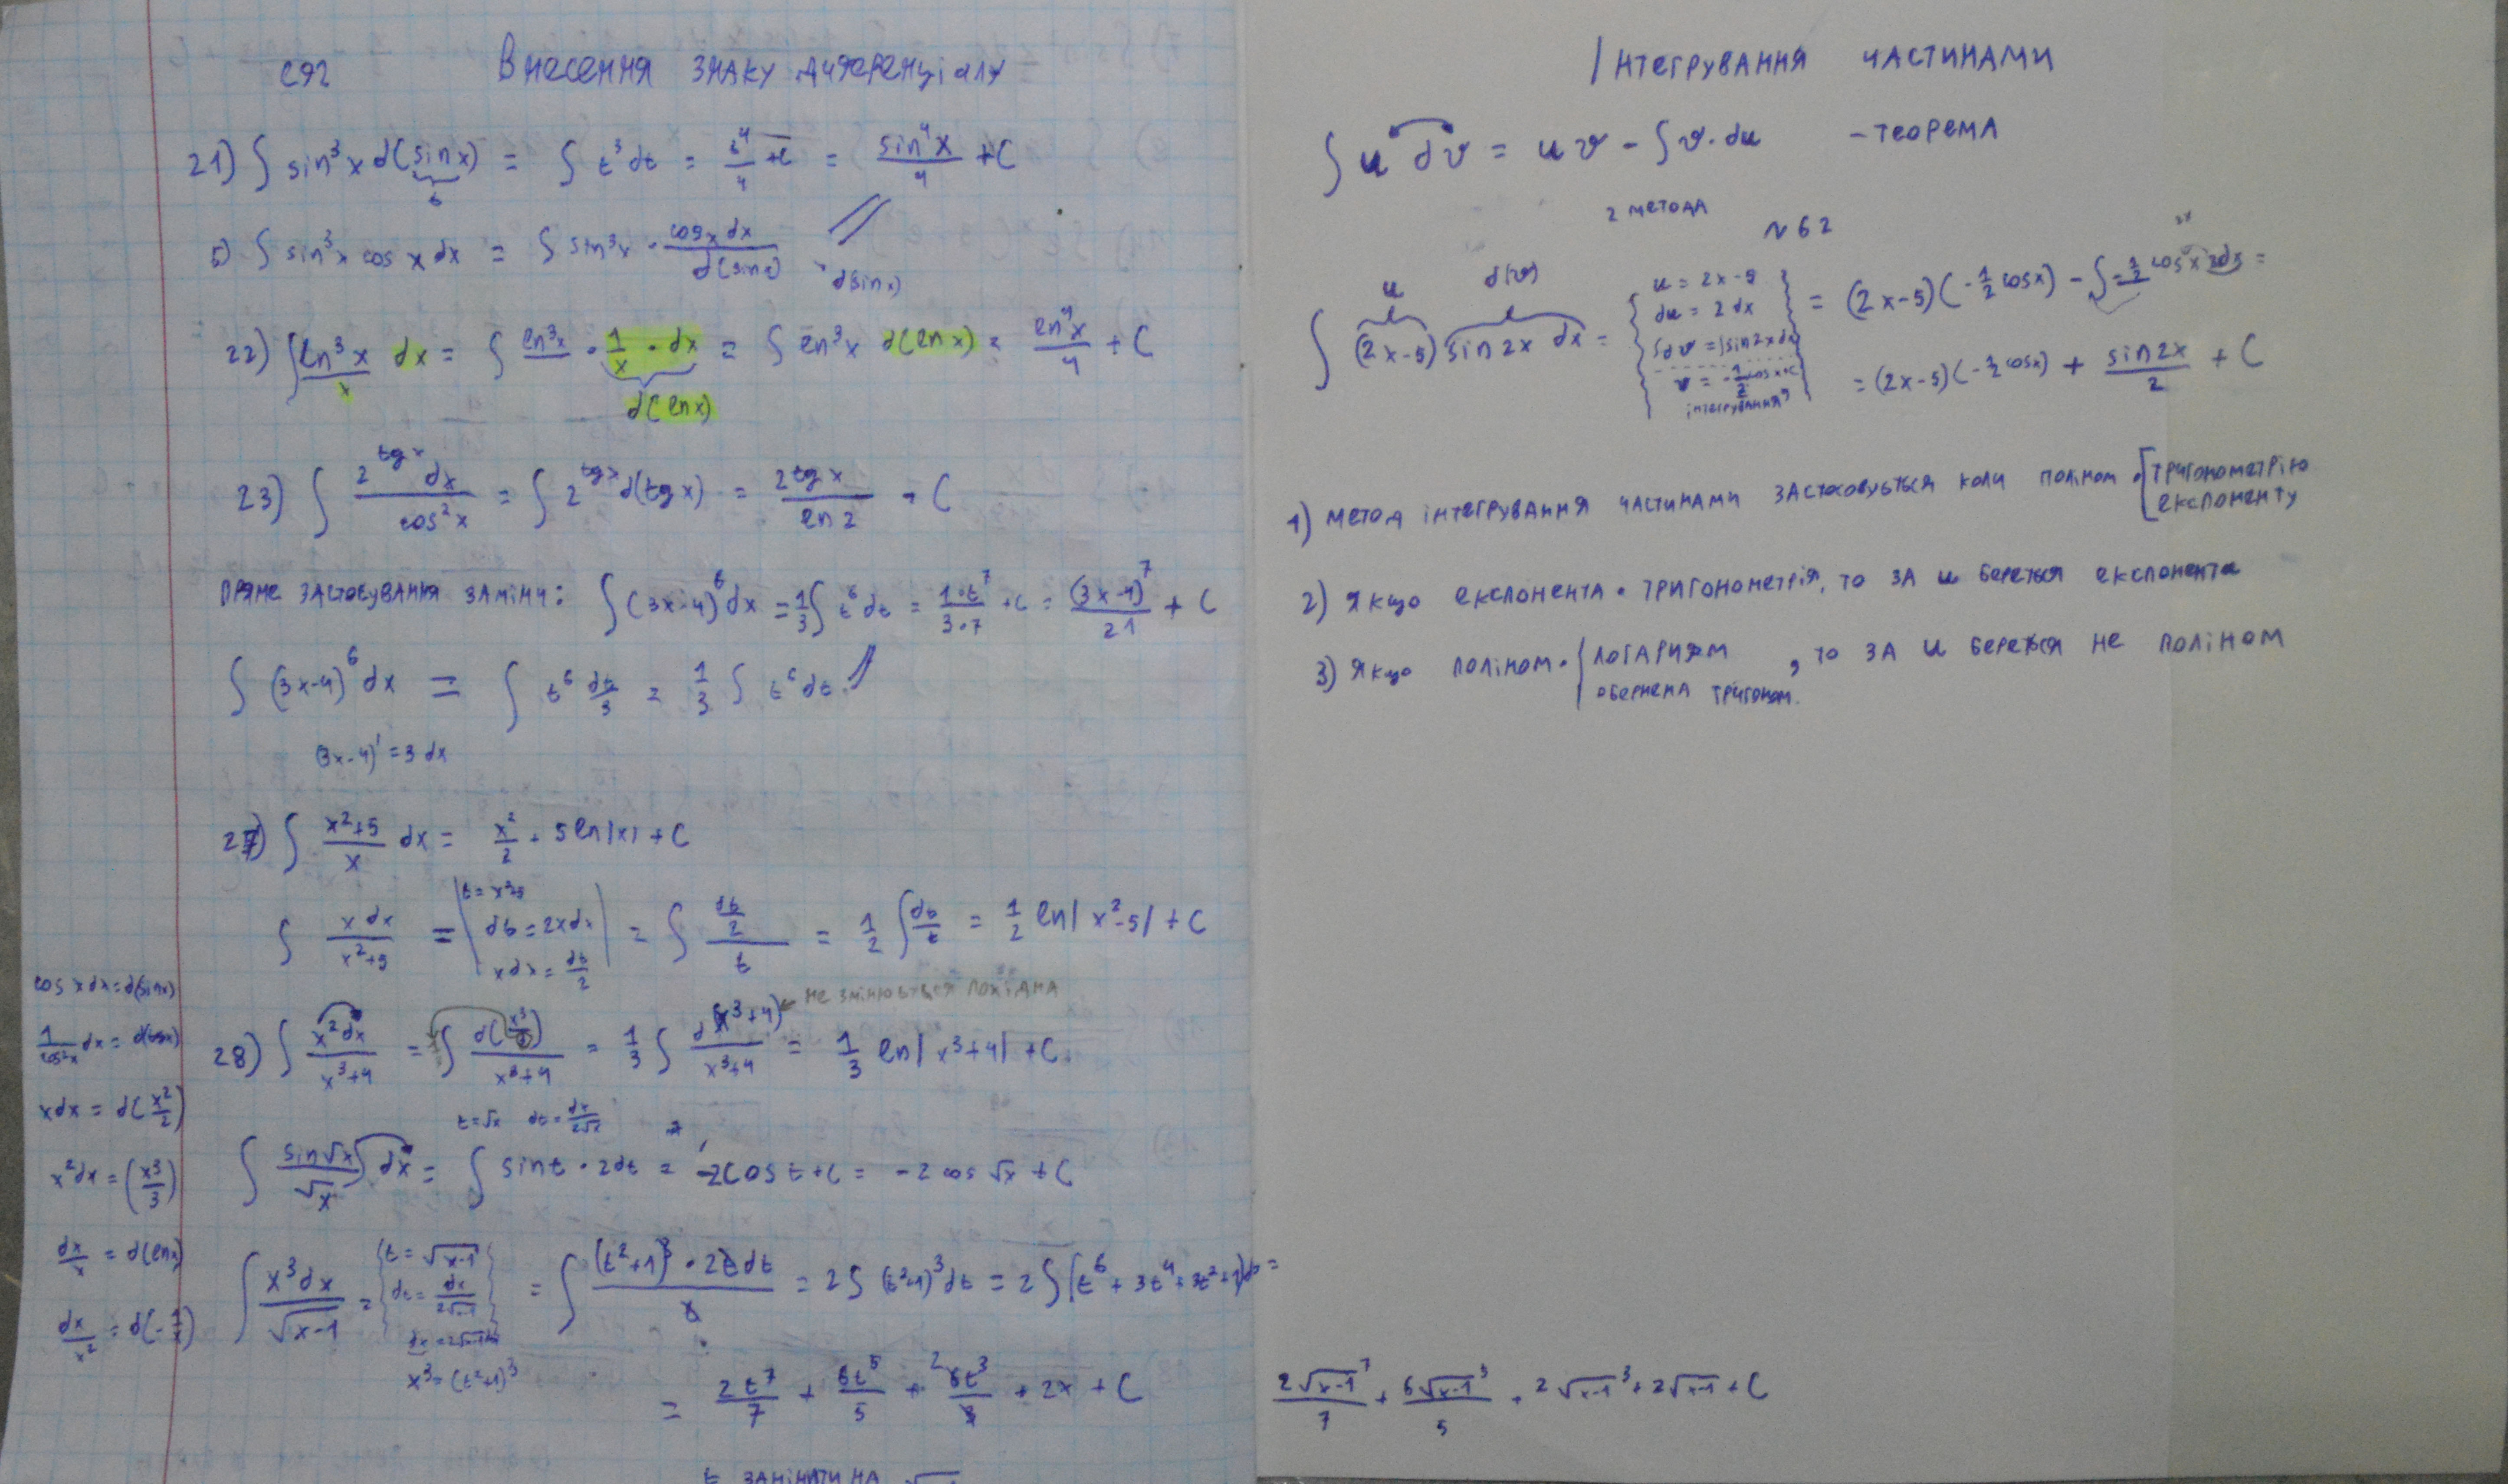 ст2 Внесення знаку диференціалу
21) ∫ sin³x d(sin x) = ∫ t³dt = t⁴/4 + C = sin⁴x/4 + C
t
б) ∫ sin³x cos x dx = ∫ sin³x · cos x dx / d(sin x) d(sin x)
22) ∫ ln³x/x dx = ∫ ln³x · 1/x · dx = ∫ ln³x d(ln x) = ln⁴x/4 + C
d(ln x)
23) ∫ 2^(tg x) dx / cos²x = ∫ 2^(tg x) d(tg x) = 2^(tg x)/ln 2 + C
Пряме застосування заміни: ∫ (3x-4)⁶dx = 1/3 ∫ t⁶dt = 1·t⁷/3·7 + C = (3x-4)⁷/21 + C
∫ (3x-4)⁶dx = ∫ t⁶ dt/3 = 1/3 ∫ t⁶dt
(3x-4)' = 3dx
27) ∫ x²+5/x dx = x²/2 + 5 ln|x| + C
∫ x dx/x²+5 = | t = x²+5
dt = 2xdx
xdx = dt/2 | = ∫ dt/2 / t = 1/2 ∫ dt/t = 1/2 ln|x²-5| + C
не змінюється похідна
28) ∫ x²dx/x³+4 = ∫ d(x³/3)/x³+4 = 1/3 ∫ d(x³+4)/x³+4 = 1/3 ln|x³+4| + C
t = √x dt = dx/2√x
∫ sin√x/√x dx = ∫ sin t · 2dt = -2cos t + C = -2 cos √x + C
∫ x³dx/√x-1 = { t = √x-1
dt = dx/2√x-1 }
dx = 2√x-1 dt
x³ = (t²+1)³
= ∫ (t²+1)³ · 2t dt / t = 2∫ (t²+1)³dt = 2∫ (t⁶ + 3t⁴ + 3t² + 1)dt =
= 2t⁷/7 + 6t⁵/5 + 6t³/3 2 + 2x + C
t замінити на
cos x dx = d(sin x)
1/cos²x dx = d(tg x)
xdx = d(x²/2)
x²dx = (x³/3)
dx/x = d(ln x)
dx/x² = d(-1/x)
Інтегрування частинами
∫ u dv = uv - ∫ v·du - теорема
2 метода
№62
u d(v)
∫ (2x-5) sin 2x dx = { u = 2x-5
du = 2dx
∫dv = ∫sin2xdx
v = -1/2 cosx+C
інтегрування } = (2x-5)(-1/2 cosx) - ∫ -1/2 cos x 2dx =
= (2x-5)(-1/2 cosx) + sin2x/2 + C
1) Метод інтегрування частинами застосовується коли поліном · [ тригонометрію
експоненту
2) Якщо експонента · тригонометрія, то за u береться експонента
3) Якщо поліном · { логарифм
обернена тригоном. , то за u береться не поліном
2√x-1⁷/7 + 6√x-1⁵/5 + 2√x-1³ + 2√x-1 + C